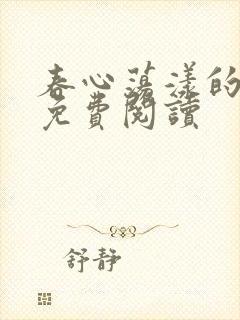 春心蕩漾的
免費閱讀
舒靜